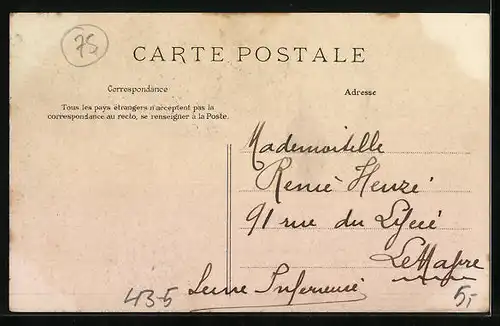 75
CARTE POSTALE
Correspondance
Adresse
Tous les pays étrangers n'acceptent pas la
correspondance au recto, se renseigner à la Poste.
Mademoiselle
René Henzé
91 rue du Lycée
Le Havre
Seine Inferieure
43-5
5,-